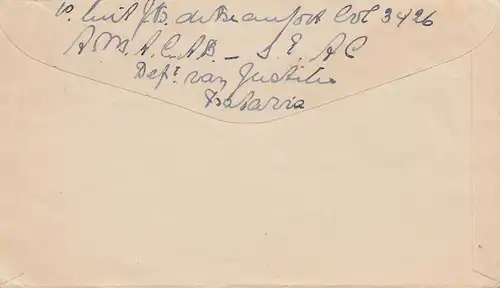 Luit J.B. de Beaufort Col 3426
A.M.A.C.A.B. – S.E.A.C
Dept van Justitie
Batavia